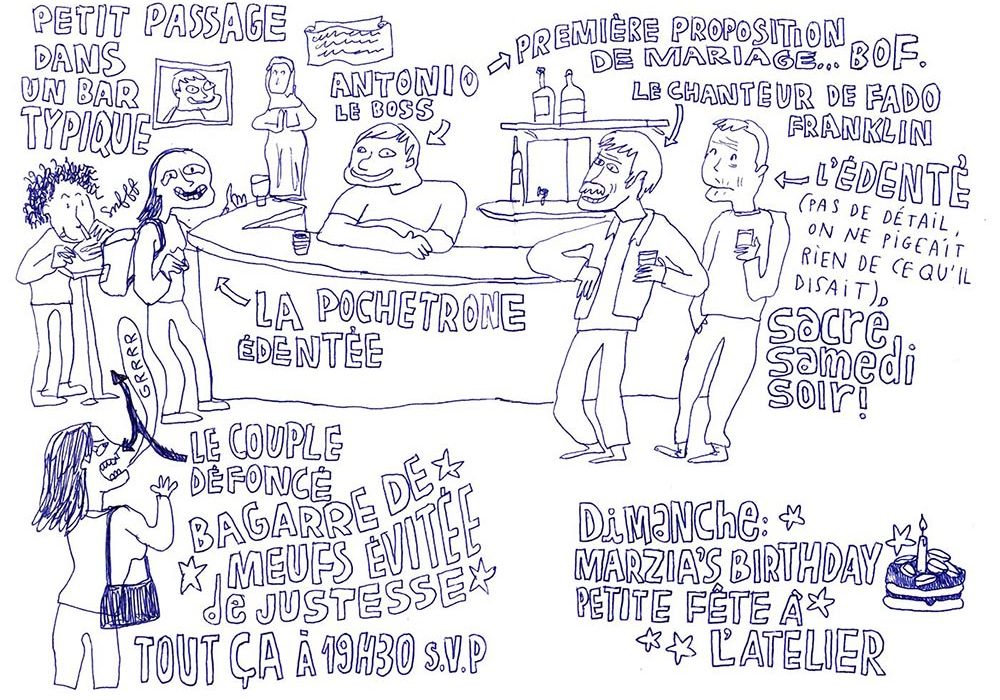 PETIT PASSAGE
DANS
UN BAR
TYPIQUE
ANTONIO
LE BOSS
PREMIÈRE PROPOSITION
DE MARIAGE... BOF.
LE CHANTEUR DE FADO
FRANKLIN
L'ÉDENTÉ
(PAS DE DÉTAIL,
ON NE PIGEAIT
RIEN DE CE QU'IL
DISAIT),
sacré
samedi
soir!
Snifff
LA POCHETRONE
ÉDENTÉE
GRRRR
LE COUPLE
DÉFONCÉ
BAGARRE DE
MEUFS ÉVITÉE
de JUSTESSE
TOUT ÇA À 19H30 S.V.P
Dimanche:
MARZIA'S BIRTHDAY
PETITE FÊTE À
L'ATELIER